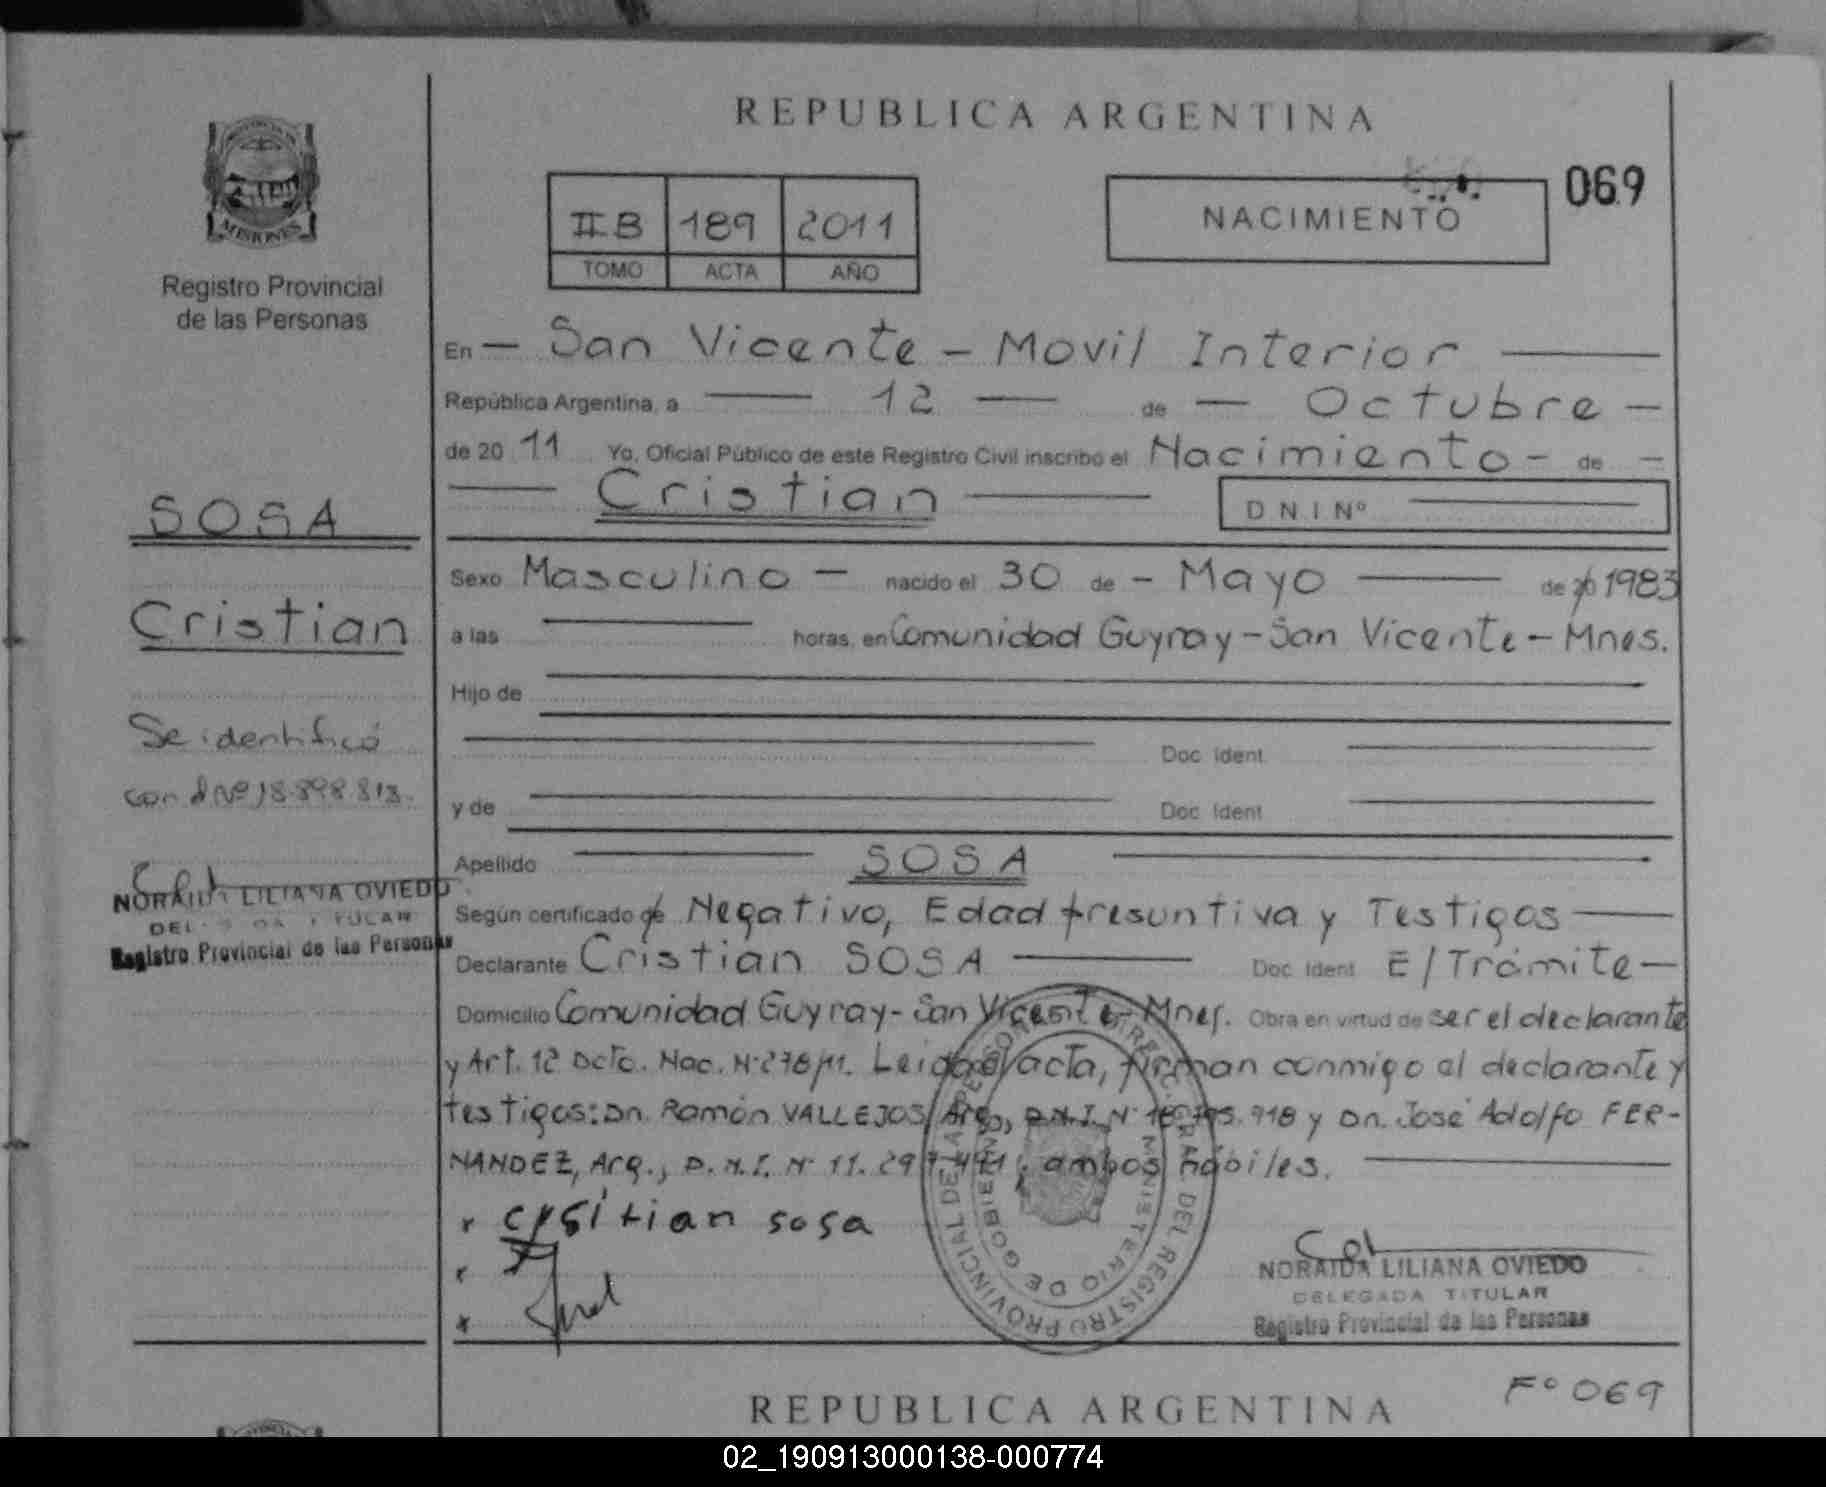 REPUBLICA ARGENTINA
PROVINCIA DE
MISIONES
Registro Provincial
de las Personas
IIB 189 2011
TOMO ACTA AÑO
NACIMIENTO
069
En — San Vicente - Movil Interior —
República Argentina, a — 12 — de — Octubre —
de 20 11 Yo, Oficial Público de este Registro Civil inscribo el Nacimiento - de -
— Cristian —
D N I Nº —
SOSA
Cristian
Sexo Masculino — nacido el 30 de - Mayo — de 20 1983
a las — horas, en Comunidad Guyray - San Vicente - Mnes.
Hijo de —
— Doc. Ident. —
y de — Doc. Ident. —
Se identificó
con d Nº 18.898.813.
Apellido — SOSA —
NORAIDA LILIANA OVIEDO
DELEGADA TITULAR
Registro Provincial de las Personas
Según certificado de Negativo, Edad Presuntiva y Testigos —
Declarante Cristian SOSA — Doc. Ident. E/Trámite —
Domicilio Comunidad Guyray - San Vicente - Mnes. Obra en virtud de ser el declarante
y Art. 12 Dcto. Nac. Nº 278/11. Leida el acta, firman conmigo el declarante y
testigos: Dn. Ramón VALLEJOS, Arg., D.N.I. Nº .918 y Dn. José Adolfo FER-
NANDEZ, Arg., D.N.I. Nº 11. ambos hábiles. —
x crisitian sosa
x
x
DIREC. GRAL. DEL REGISTRO PROVINCIAL DE LAS PERSONAS
MINISTERIO DE GOBIERNO
NORAIDA LILIANA OVIEDO
DELEGADA TITULAR
Registro Provincial de las Personas
Fº 069
REPUBLICA ARGENTINA
02_190913000138-000774